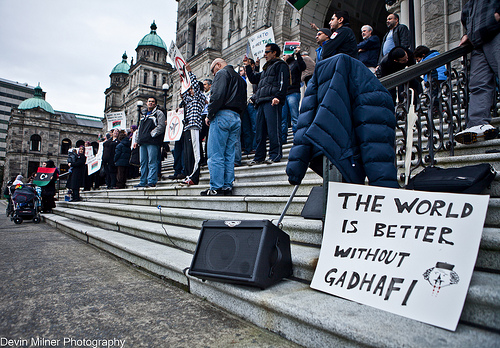 THE WORLD
IS BETTER
WITHOUT
GADHAFI
Devin Milner Photography